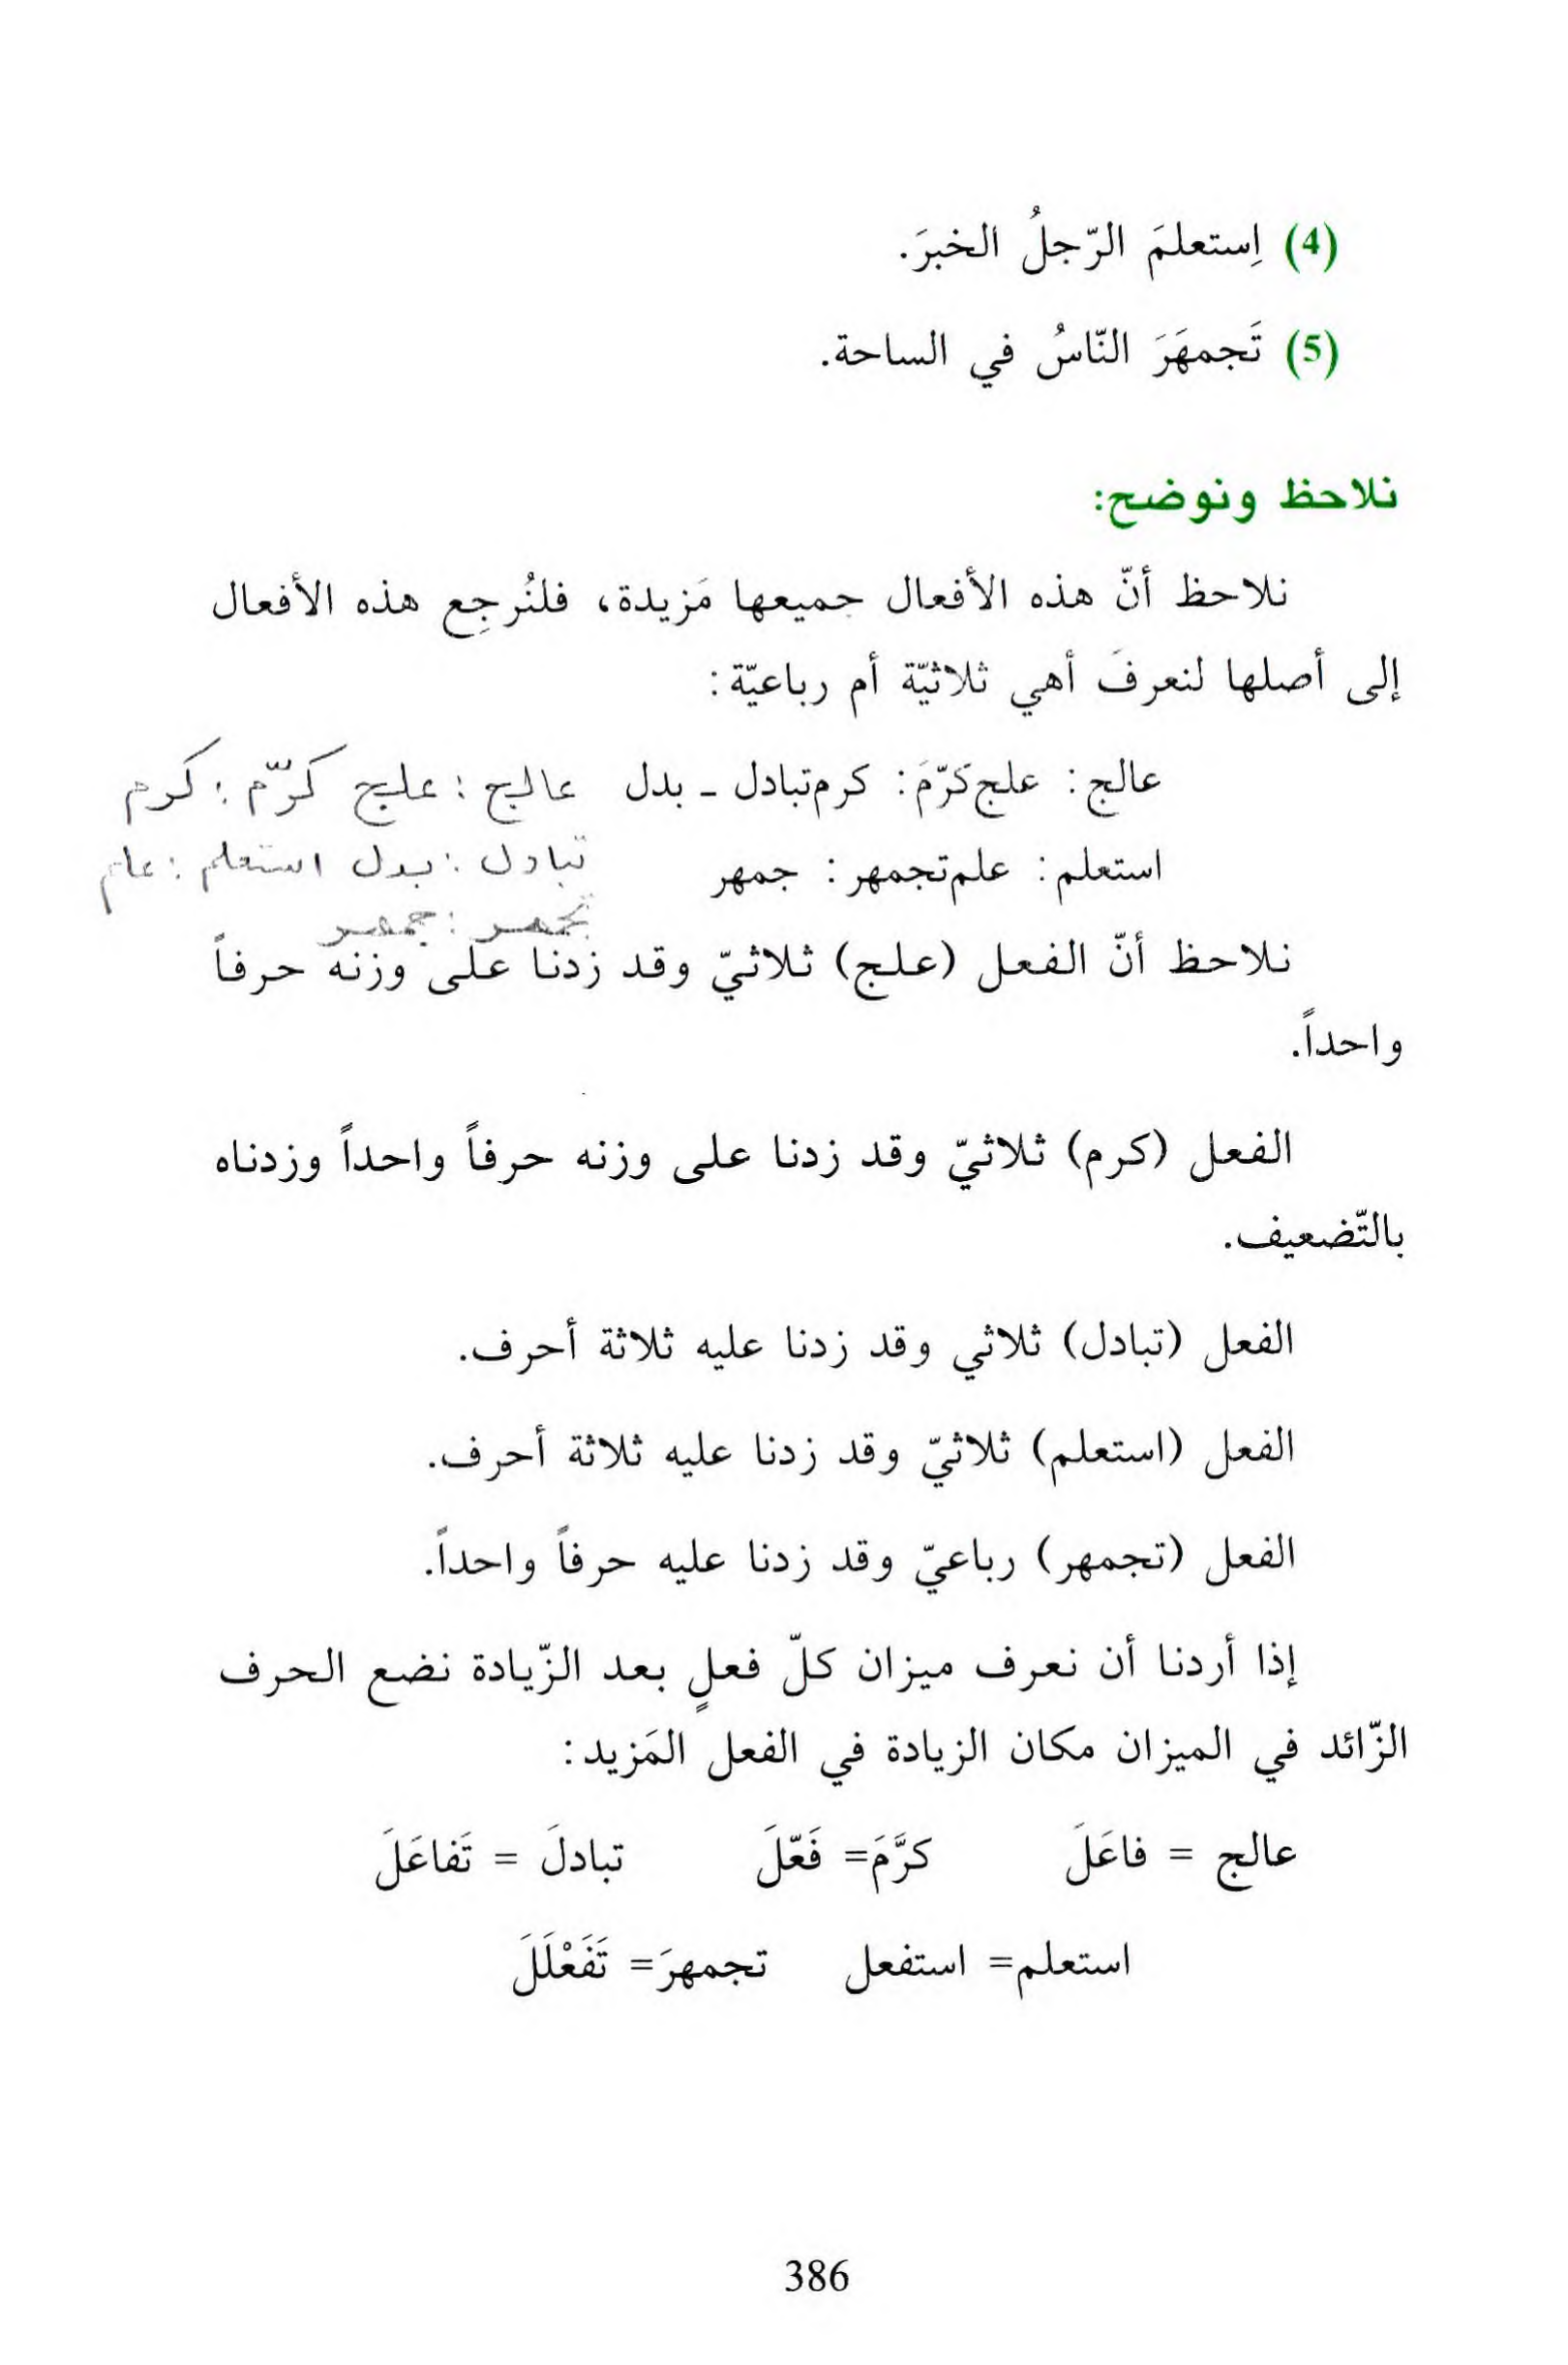 (4) اِستعلمَ الرّجلُ الخبرَ.
(5) تَجمهَرَ النّاسُ في الساحة.
نلاحظ ونوضح:
نلاحظ أنّ هذه الأفعال جميعها مَزيدة، فلنُرجِع هذه الأفعال
إلى أصلها لنعرفَ أهي ثلاثيّة أم رباعيّة:
عالج: علجكرّمَ: كرمتبادل ـ بدل عالج : علج كرّم : كرم
استعلم: علمتجمهر: جمهر تبادل : بدل استعلم : علم
تجمهر : جمهر
نلاحظ أنّ الفعل (علج) ثلاثيّ وقد زدنا على وزنه حرفاً
واحداً.
الفعل (كرم) ثلاثيّ وقد زدنا على وزنه حرفاً واحداً وزدناه
بالتّضعيف.
الفعل (تبادل) ثلاثي وقد زدنا عليه ثلاثة أحرف.
الفعل (استعلم) ثلاثيّ وقد زدنا عليه ثلاثة أحرف.
الفعل (تجمهر) رباعيّ وقد زدنا عليه حرفاً واحداً.
إذا أردنا أن نعرف ميزان كلّ فعلٍ بعد الزّيادة نضع الحرف
الزّائد في الميزان مكان الزيادة في الفعل المَزيد:
عالج = فاعَلَ كرَّمَ= فَعّلَ تبادلَ = تَفاعَلَ
استعلم= استفعل تجمهرَ= تَفَعْلَلَ
386